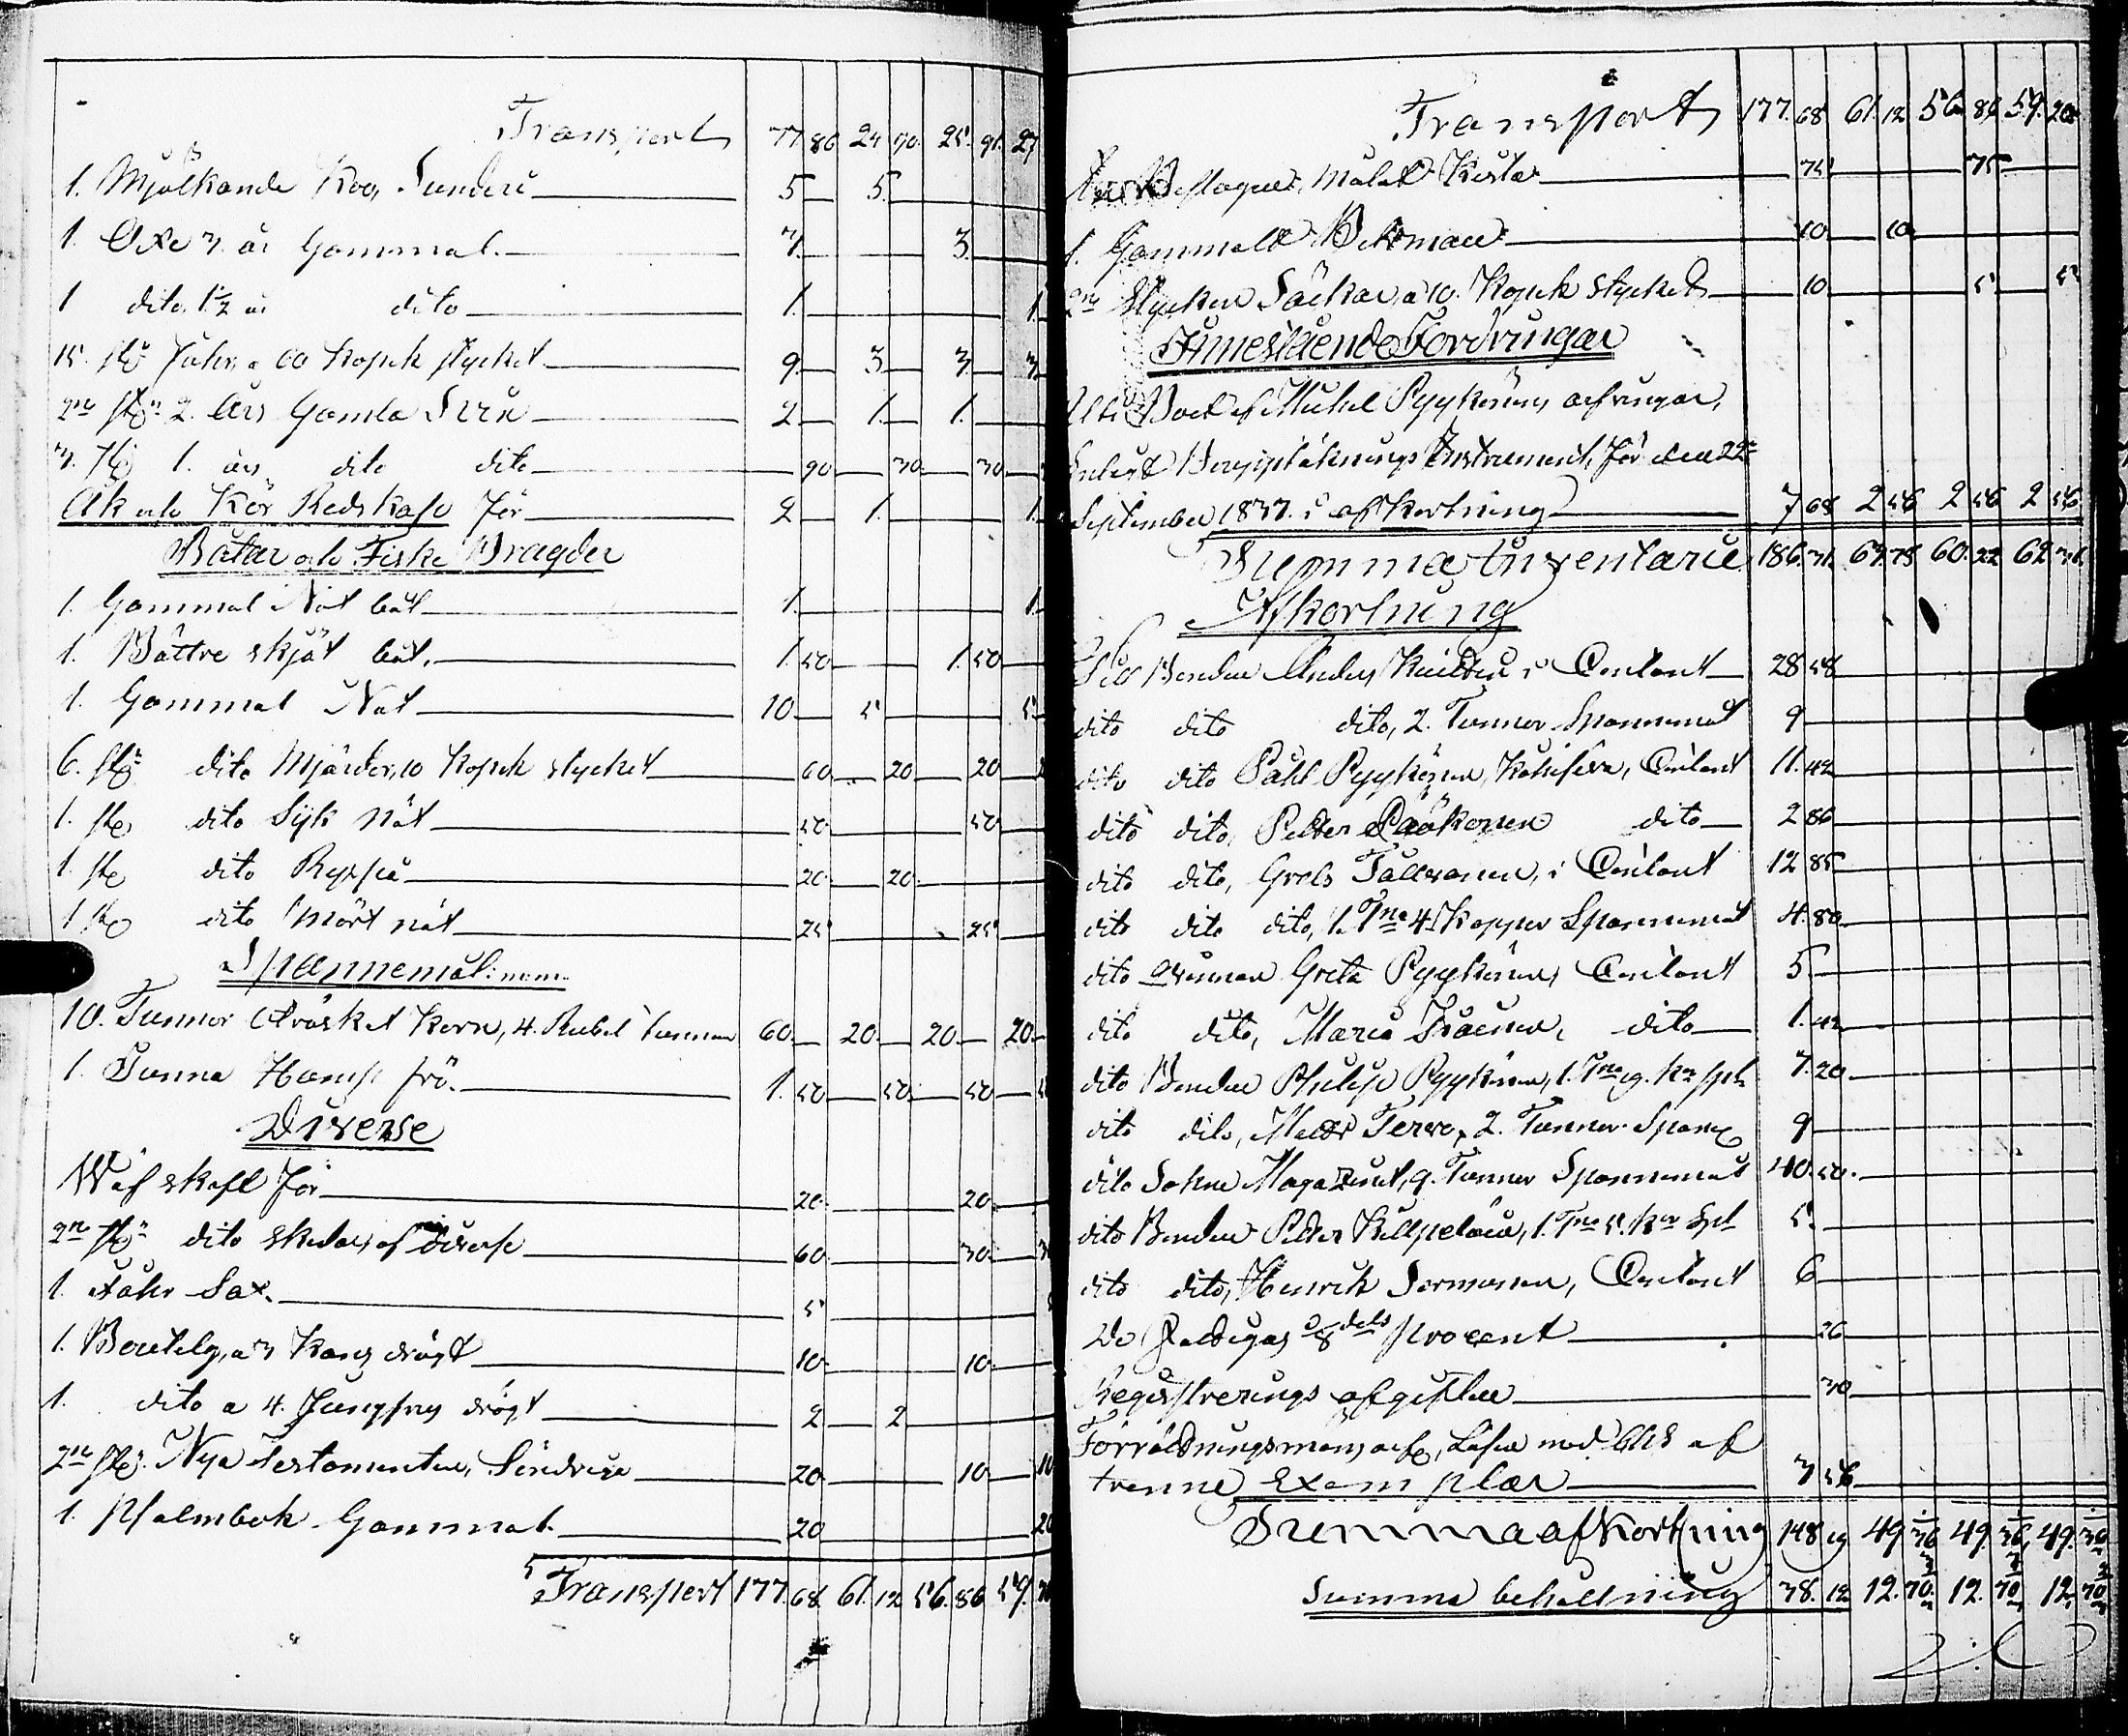 Transport 77. 80 24 70. 25. 91. 27
1. Mjölkande Koo, Sunderi 5 5.
1. Oxe 3. år Gammal. 3. 3.
1 dito, 1½ år dito 1. 1.
15. st: Fåhr, a 60 Kopek stycket 9 3 3. 3
2ne st: 2. Års Gamla Svin 2 1. 1.
3. st: 1. års dito dito 90 30 30
Åk och Kör Redskap för 2 1. 1.
Båtar och Fiske Bragder
1. Gammal Not båt 1. 1.
1. Bättre skjöt båt. 1. 50 1. 50
1. Gammal Not 10 5 5
6. st: dito Mjärder, 10 Kopek stycket 60 20 20 2
1. st: dito Syk nät 50 50
1. st: dito Ryssia 20 20
1 st: dito Mört nät 25 25
Spannemål:
10. Tunnor Otröskat Korn, 4. Rubel tunnan 60 20 20 20
1. Tunna Hamp frö. 1. 50 50 50
Diverse
Wäfskaft för 20 20
2ne st: dito skedar, af diverse 60 30 3
1. Fåhr Sax. 5
1. Boutelg, a 3 Kans drögt 10 10
1. dito a 4. Jungfrus drögt 2 2
2ne st: Nya Testamenten, Söndrige 20 10 10
1. Psalmbok Gammal. 20 20
Transport 177. 68. 61. 12 56. 86 59.
Transport 177. 68 61. 12 56 86 59. 20
Beslagne, Målad Kista 75 75
1. Gammald Betsman 10 10
2ne Stycken Säckar, a 10. Kopek stycket 10 5 5
Innestående Fordringar
Bouptäknings Instrument, för den 22e
September 1837. i afkortning 7 68 2 56 2 56 2 56
Summa Inventarie 186. 31. 63. 78 60. 22 62 31.
Afkortning
Till Bonden Anders i Contant 28 58
dito dito dito, 2. Tunnor Spannemål 9
dito dito Påhl Pyykönen, Contant 11. 42
dito dito, Petter Pääkönen dito 2 86
dito dito, Grels Tallvanen, i Contant 12 85
dito dito dito, 1. Tna 4 Kappar Spannemål 4. 80
dito Qvinnan Greta Pyykönen, Contant 5
dito dito, Maria dito 1. 42
dito Bonden Philip Pyykönen, 1. Tna 7. 20
dito dito, Matts Tervo, 2. Tunnor Spanm: 9
dito Sokne Magazinet, 9. Tunnor Spannemål 40. 50.
dito Bonden Petter Killpeläin, 1. Tna 5. Kar Spl 5.
dito dito, Henrik Sormunen, Contant 6
De Fattigas ⅛ dels procent 26
Registrerings afgiften 30
Förrättningsmans arf:, Lösen med blek af
trenne Exemplar 3 56
Summa afkortning 148 19 49 36 49. 36, 49. 36
Summa behållning 38. 12 12. 70. 12. 70 12. 70